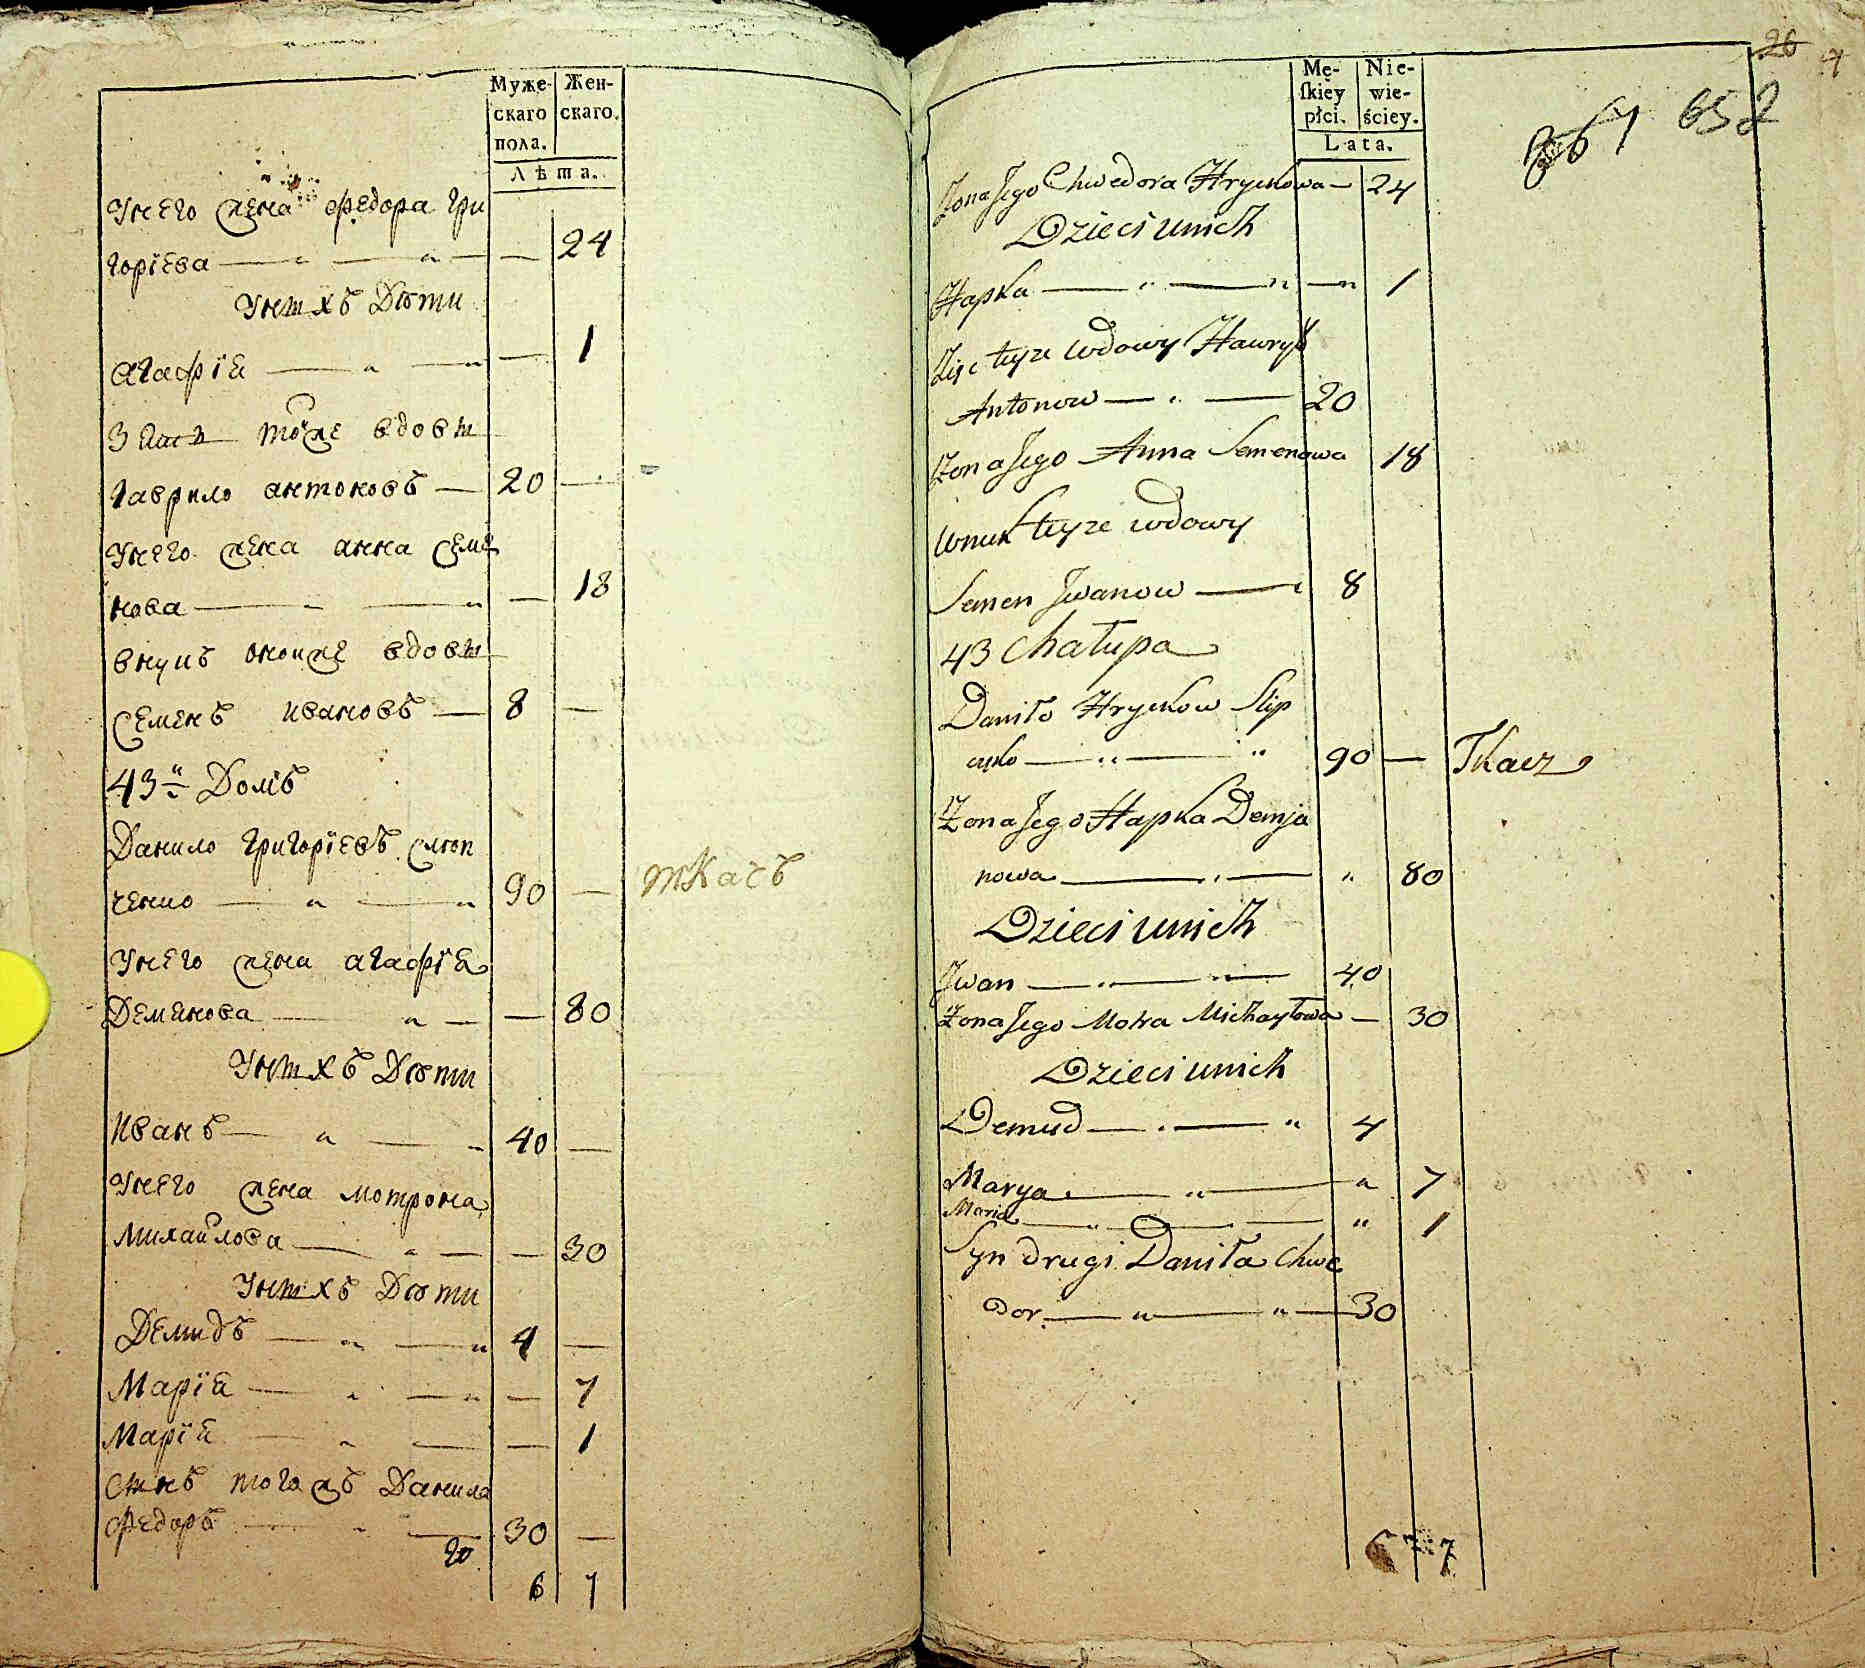 Муже-
скаго
пола.
Жен-
скаго.
Лѣта.
Унего жена федора гри
горїева — 24
Унихъ Дѣти
агафїя — 1
Зять тоиже вдовы
гаврило антоновъ — 20 —
Унего жена анна семе
нова — 18
внукъ оноиже вдовы
семенъ ивановъ — 8 —
43й Домъ
Данило григорїевъ слюп
ченко — 90 — ткачъ
Унего жена агафїя
Демянова — 80
Унихъ Дѣти
иванъ — 40 —
Унего жена мотрона
михаилова — 30
Унихъ Дѣти
Демидъ — 4 —
Марїя — 7
Марїя — 1
сынъ тогожъ Данила
федоръ — 30 —
6 7
26
4
652
Mę-
ſkiey
płci.
Nie-
wie-
ściey.
Lata.
Zona Jego Chwedora Hryckowa — 24
Dzieci unich
Hapka — 1
Zięc teyze wdowy Hawryło
Antonow — 20
Zona Jego Anna Semenowa 18
Wnuk teyze wdowy
Semen Jwanow — 8
43 Chałupa
Daniło Hryckow Slip
czko — 90 — Tkacz
Zona Jego Hapka Demja
nowa — 80
Dzieci unich
Jwan — 40
Zona Jego Motra Michayłowa — 30
Dzieci unich
Demud — 4
Marya — 7
Maria — 1
Syn drugi Daniła Chwe
dor — 30
6 7